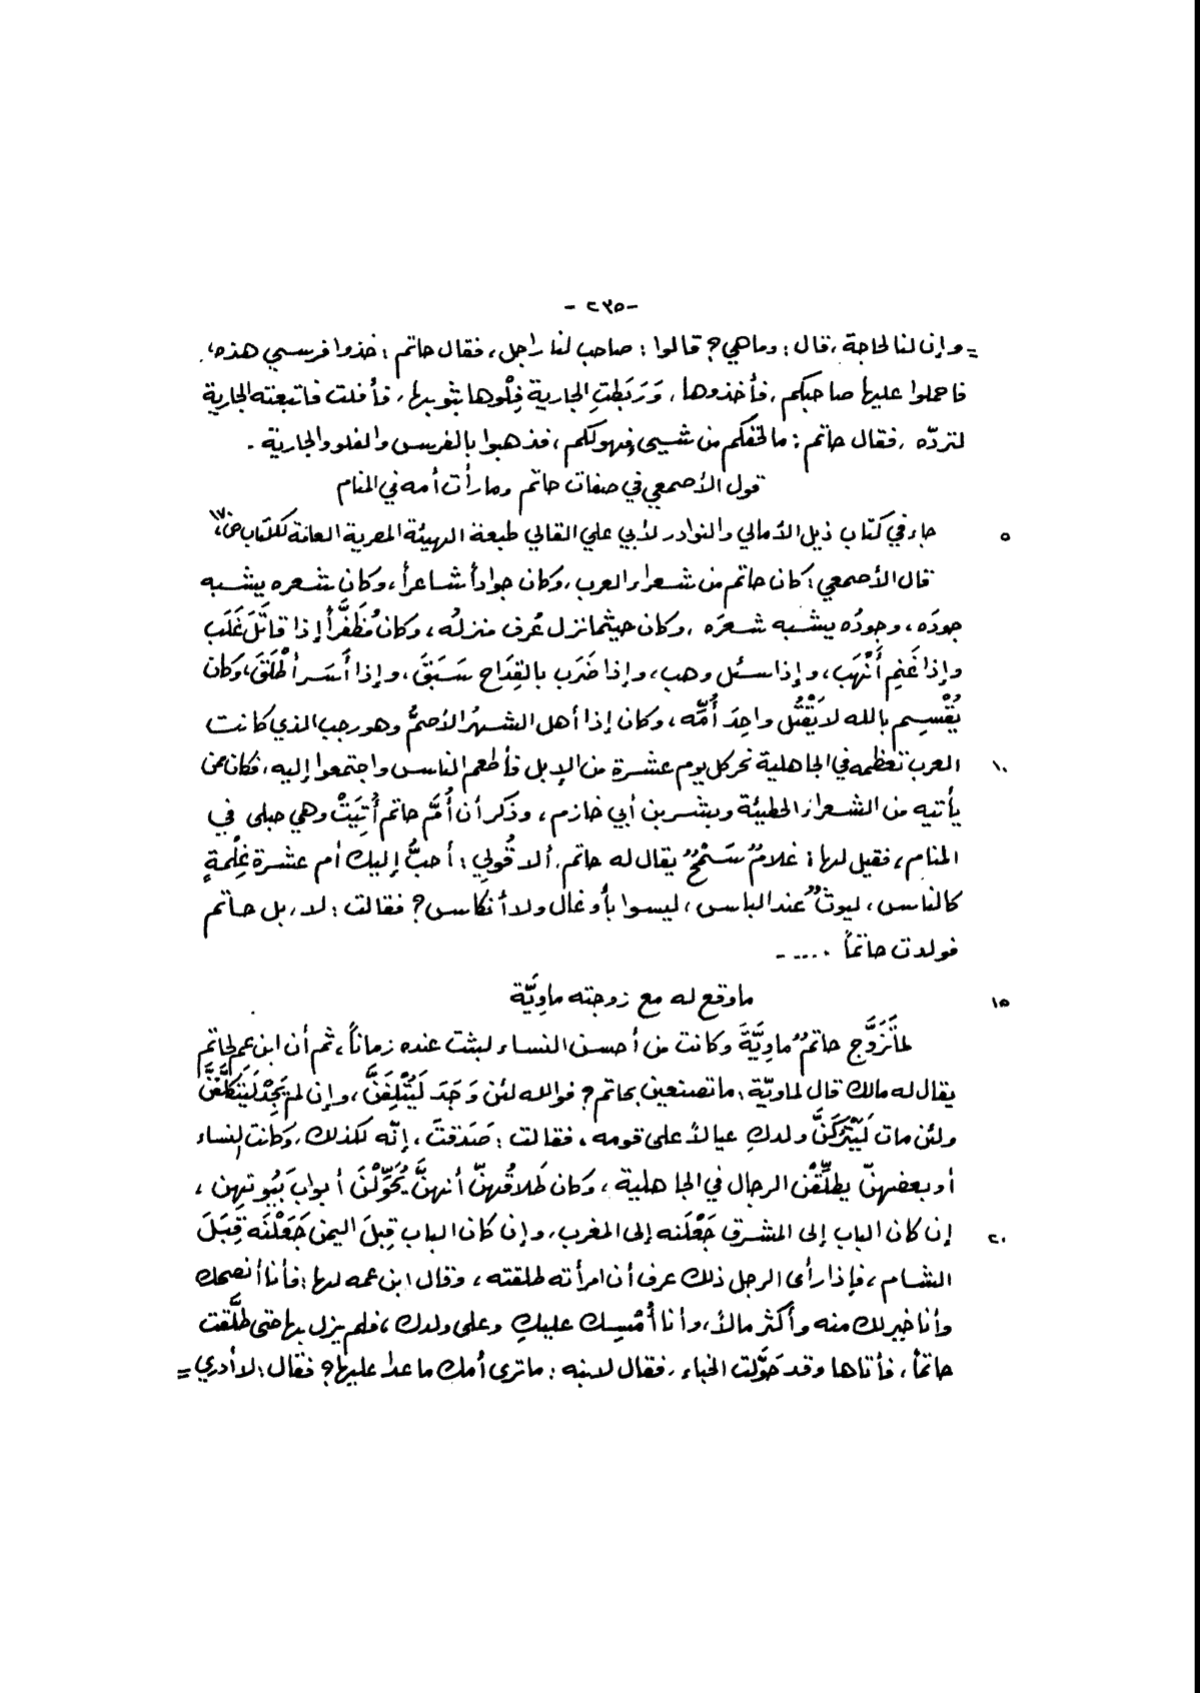 - ٢٣٥ -
= وإن لنا لحاجة، قال: وماهي؟ قالوا: صاحب لنا راجل، فقال حاتم: خذوا فرسي هذه،
فاحملوا عليها صاحبكم، فأخذوها، وَرَبَطتِ الجارية فِلْوها بثوبها، فأفلت فاتبعته الجارية
لتردّه، فقال حاتم: ما لحقكم من شيئ فهولكم، فذهبوا بالفرس والفلو والجارية.
قول الأصمعي في صفات حاتم وما رأت أمه في المنام
٥ جاء في كتاب ذيل الأمالي والنوادر لأبي علي القالي طبعة الهيئة المصرية العامة للكتاب ص،
قال الأصمعي: كان حاتم من شعراء العرب، وكان جواداً شاعراً، وكان شعره يشبه
جودَه، وجودُه يشبه شعرَه، وكان حيثما نزل عُرف منزلُه، وكان مُظَفَّراً إذا قاتَلَ غَلَب
وإذا غَنِم أَنْهَب، وإذا سئل وهب، وإذا ضَرَب بالقِدَاح سَبَقَ، وإذا أَسَر أَطْلَقَ، وكان
يُقْسِم بالله لا يَقْتُل واحِدَ أُمِّه، وكان إذا أهل الشهرُ الأصمُّ وهو رجب الذي كانت
١٠ العرب تعظمه في الجاهلية نحر كل يوم عشرة من الإبل فأطعم الناس واجتمعوا إليه، فكان ممن
يأتيه من الشعراء الحطيئة وبشر بن أبي خازم، وذكر أن أُمَّ حاتم أُتِيَتْ وهي حبلى في
المنام، فقيل لها: غلامٌ سَمْحٌ يقال له حاتم، ألا قُولِي: أحبُّ إليك أم عشرة غِلْمةٍ
كالناس، ليوثٌ عند الباس، ليسوا بأوغال ولا أنكاس؟ فقالت: لا، بل حاتم
فولدت حاتماً ....-
١٥ ماوقع له مع زوجته ماوِيَّة
لمّا تَزَوَّج حاتمٌ ماوِيَّةَ وكانت من أحسن النساء لبثت عنده زماناً، ثم أن ابن عم لحاتم
يقال له مالك قال لماويّة: ما تصنعين بحاتم؟ فوالله لئن وَجَدَ لَيُتْلِفَنَّ، وإن لم يَجِدْ لَيَتَكلَّفَنَّ
ولئن مات لَيَتْرُكَنَّ ولدكِ عيالاً على قومه، فقالت: صَدَقتَ، إنّه لكذلك، وكانت النساء
أو بعضهنّ يطلِّقْن الرجال في الجاهلية، وكان طَلاقُهنّ أنهنَّ يُحَوِّلْنَ أبوابَ بُيُوتهن،
٢٠ إن كان الباب إلى المشرق جَعْلَنه إلى المغرب، وإن كان الباب قِبلَ اليمن جَعَلْنَه قِبَلَ
الشام، فإذا رأى الرجل ذلك عرف أن امرأته طلقته، وقال ابن عمه لها: فأنا أنصحك
وأنا خير لك منه وأكثر مالاً، وأنا أُمْسِك عليكِ وعلى ولدك، فلم يزل بها حتى طلَّقت
حاتماً، فأتاها وقد حَوَّلت الخباء، فقال لابنه: ماترى أمك ما عدا عليها؟ فقال: لا أدري =